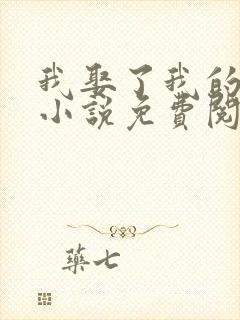 我娶了我的
小说免費閱
藥七